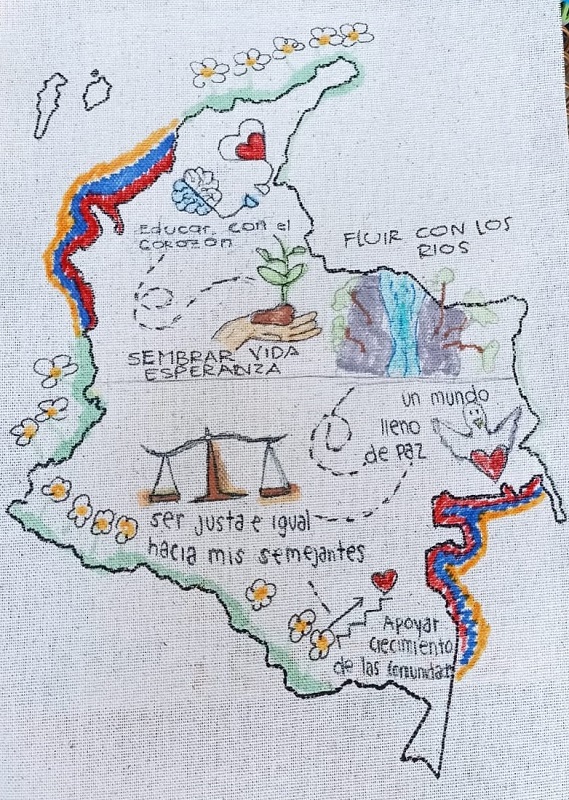 Educar con el
corazón
FLUIR CON LOS
RIOS
SEMBRAR VIDA
ESPERANZA
un mundo
lleno
de paz
ser justa e igual
hacia mis semejantes
Apoyar
crecimiento
de las